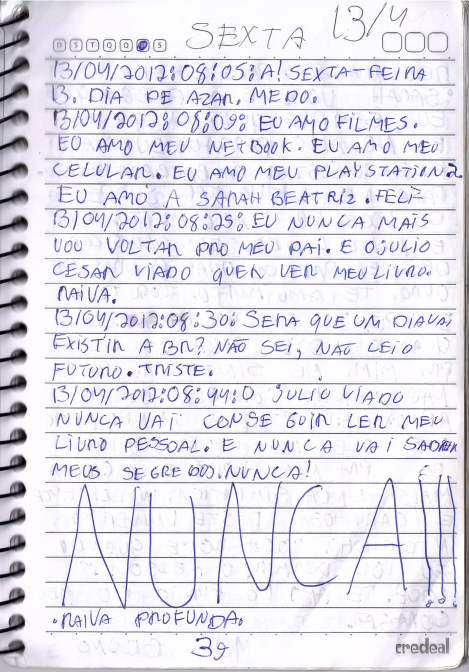 13/4
SEXTA
D S T Q Q S S
13/04/2012:08:05: A! SEXTA-FEIRA
13. DIA DE AZAR. MEDO.
13/04/2012:08:09: EU AMO FILMES.
EU AMO MEU NETBOOK. EU AMO MEU
CELULAR. EU AMO MEU PLAYSTATION 2.
EU AMO A SARAH BEATRIZ. FELIZ
13/04/2012:08:25: EU NUNCA MAIS
VOU VOLTAR PRO MEU PAI. E O JULIO
CESAR VIADO QUER VER MEU LIVRO.
RAIVA.
13/04/2012:08:30: SERA QUE UM DIA VAI
EXISTIR A BR? NÃO SEI, NÃO LEIO
FUTURO. TRISTE.
13/04/2012:08:44: O JULIO VIADO
NUNCA VAI CONSEGUIR LER MEU
LIVRO PESSOAL. E NUNCA VAI SABER
MEUS SEGREDOS. NUNCA!
NUNCA!!!
.RAIVA PROFUNDA.
39
credeal